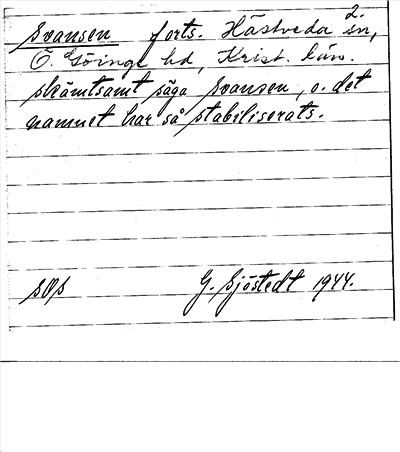 2.
Svansen forts. Hästveda sn,
Ö. Göinge hd, Krist. län.
skämtsamt säga Svansen, o. det
namnet har så stabiliserats.
G. Sjöstedt 1944.